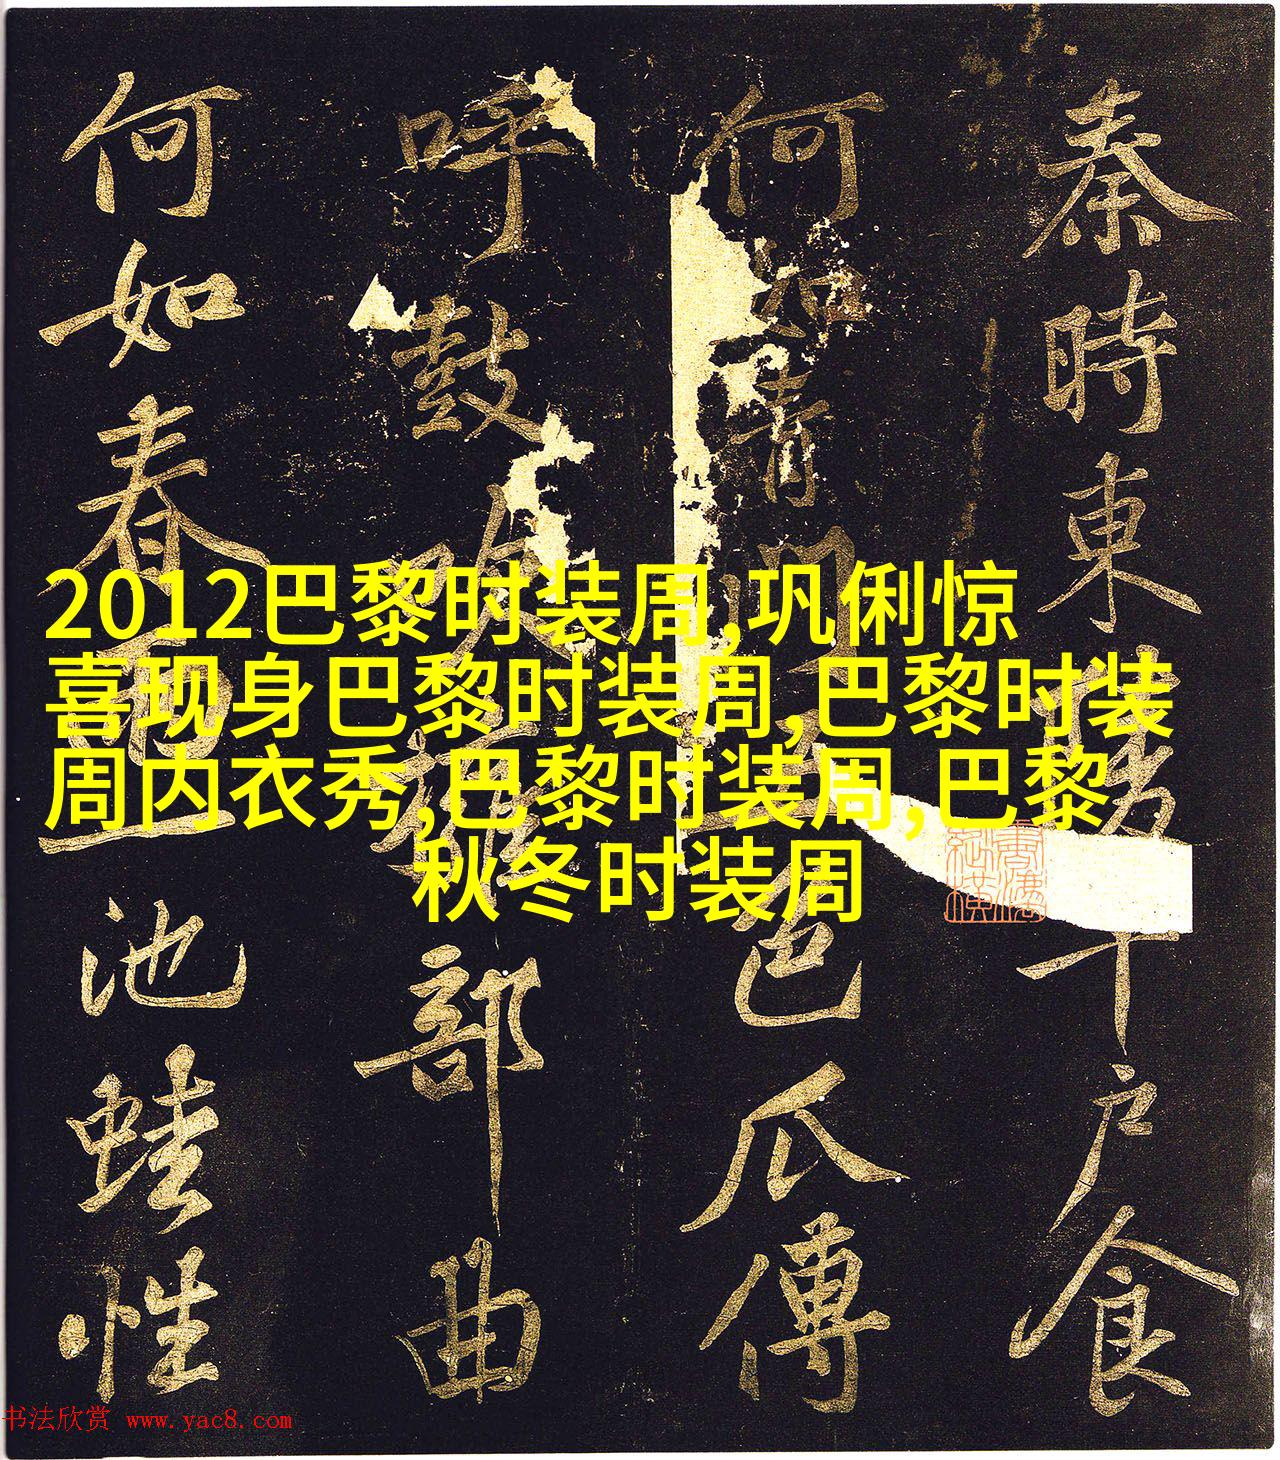 秦時東陵千户食
何如青門五色瓜傳
呼鼓吹擁部曲
何如春雨池蛙性
2012巴黎时装周,巩俐惊
喜现身巴黎时装周,巴黎时装
周内衣秀,巴黎时装周,巴黎
秋冬时装周
书法欣赏 www.yac8.com